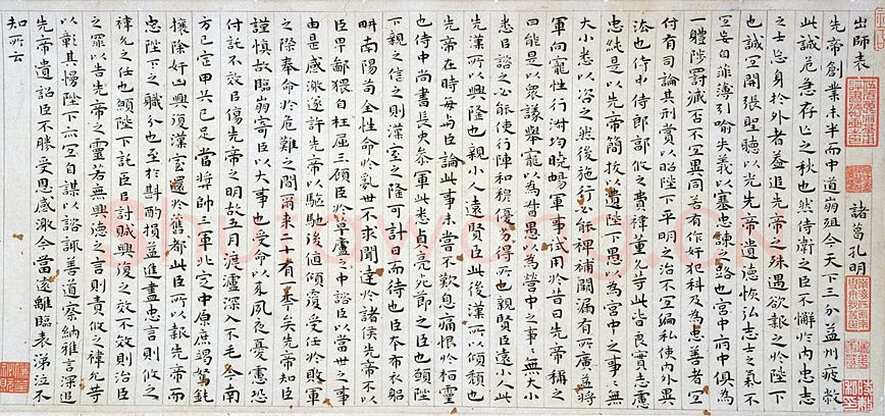 出師表 諸葛孔明
先帝創業未半而中道崩殂今天下三分益州疲敝
此誠危急存亡之秋也然侍衛之臣不懈於內忠志
之士忘身於外者蓋追先帝之殊遇欲報之於陛下
也誠宜開張聖聽以光先帝遺德恢弘志士之氣不
宜妄自菲薄引喻失義以塞忠諫之路也宮中府中俱為
一體陟罰臧否不宜異同若有作奸犯科及為忠善者宜
付有司論其刑賞以昭陛下平明之治不宜偏私使內外異
法也侍中侍郎郭攸之費禕董允等此皆良實志慮
忠純是以先帝簡拔以遺陛下愚以為宮中之事事無
大小悉以咨之然後施行必能裨補闕漏有所廣益將
軍向寵性行淑均曉暢軍事試用於昔日先帝稱之
曰能是以眾議舉寵以為督愚以為營中之事事無大小
悉以咨之必能使行陣和穆優劣得所也親賢臣遠小人此
先漢所以興隆也親小人遠賢臣此後漢所以傾頹也
先帝在時每與臣論此事未嘗不歎息痛恨於桓靈
也侍中尚書長史參軍此悉貞亮死節之臣也願陛
下親之信之則漢室之隆可計日而待也臣本布衣躬
耕南陽苟全性命於亂世不求聞達於諸侯先帝不以
臣卑鄙猥自枉屈三顧臣於草廬之中諮臣以當世之事
由是感激遂許先帝以驅馳後值傾覆受任於敗軍
之際奉命於危難之間爾來二十有一年矣先帝知臣
謹慎故臨崩寄臣以大事也受命以來夙夜憂慮恐
付託不效以傷先帝之明故五月渡瀘深入不毛今南
方已定甲兵已足當獎帥三軍北定中原庶竭駑鈍
攘除奸凶興復漢室還於舊都此臣所以報先帝而
忠陛下之職分也至於斟酌損益進盡忠言則攸之
禕允之任也願陛下託臣以討賊興復之效不效則治臣
之罪以告先帝之靈若無興德之言則責攸之禕允等
以彰其慢陛下亦宜自謀以諮諏善道察納雅言深追
先帝遺詔臣不勝受恩感激今當遠離臨表涕泣不
知所云